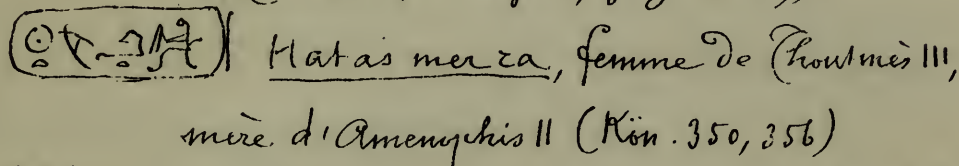 Hatas merza, femme de Thoutmès III,
mère d'Amenophis II (Kön. 350, 356)